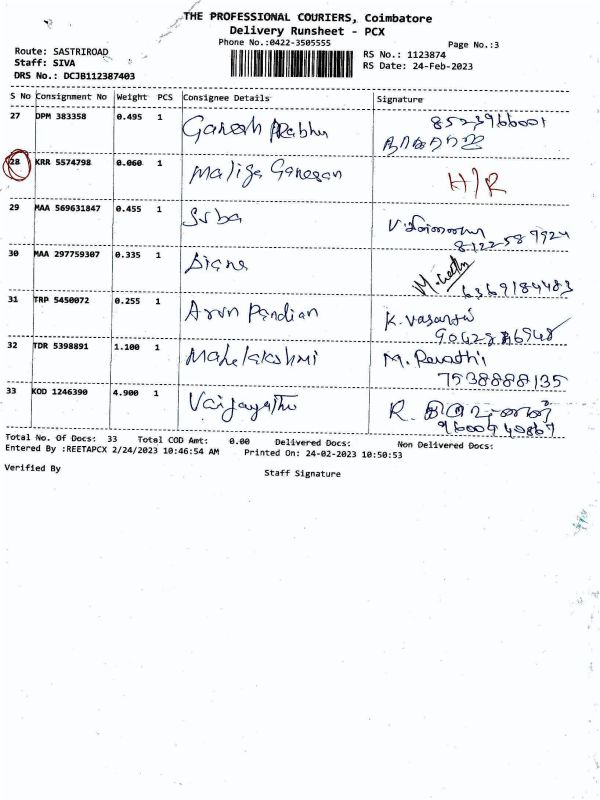 THE PROFESSIONAL COURIERS, Coimbatore
Delivery Runsheet - PCX
Phone No.:0422-3505555
Page No.:3
Route: SASTRIROAD
Staff: SIVA
DRS No.: DCJB112387403
RS No.: 1123874
RS Date: 24-Feb-2023
S No Consignment No Weight PCS Consignee Details Signature
27 DPM 383358 0.495 1 Ganesh Prabhu 8523966001
28 KRR 5574798 0.060 1 Maliga Ganesan H/R
29 MAA 569631847 0.455 1 Ssba
8122587924
30 MAA 297759307 0.335 1 Diana
6369184483
31 TRP 5450072 0.255 1 Arun Pandian K. Vasantha
32 TDR 5398891 1.100 1 Mahelakshmi M. Revathi
7538888135
33 KOD 1246390 4.900 1 R.
Total No. Of Docs: 33 Total COD Amt: 0.00 Delivered Docs: Non Delivered Docs:
Entered By :REETAPCX 2/24/2023 10:46:54 AM Printed On: 24-02-2023 10:50:53
Verified By
Staff Signature